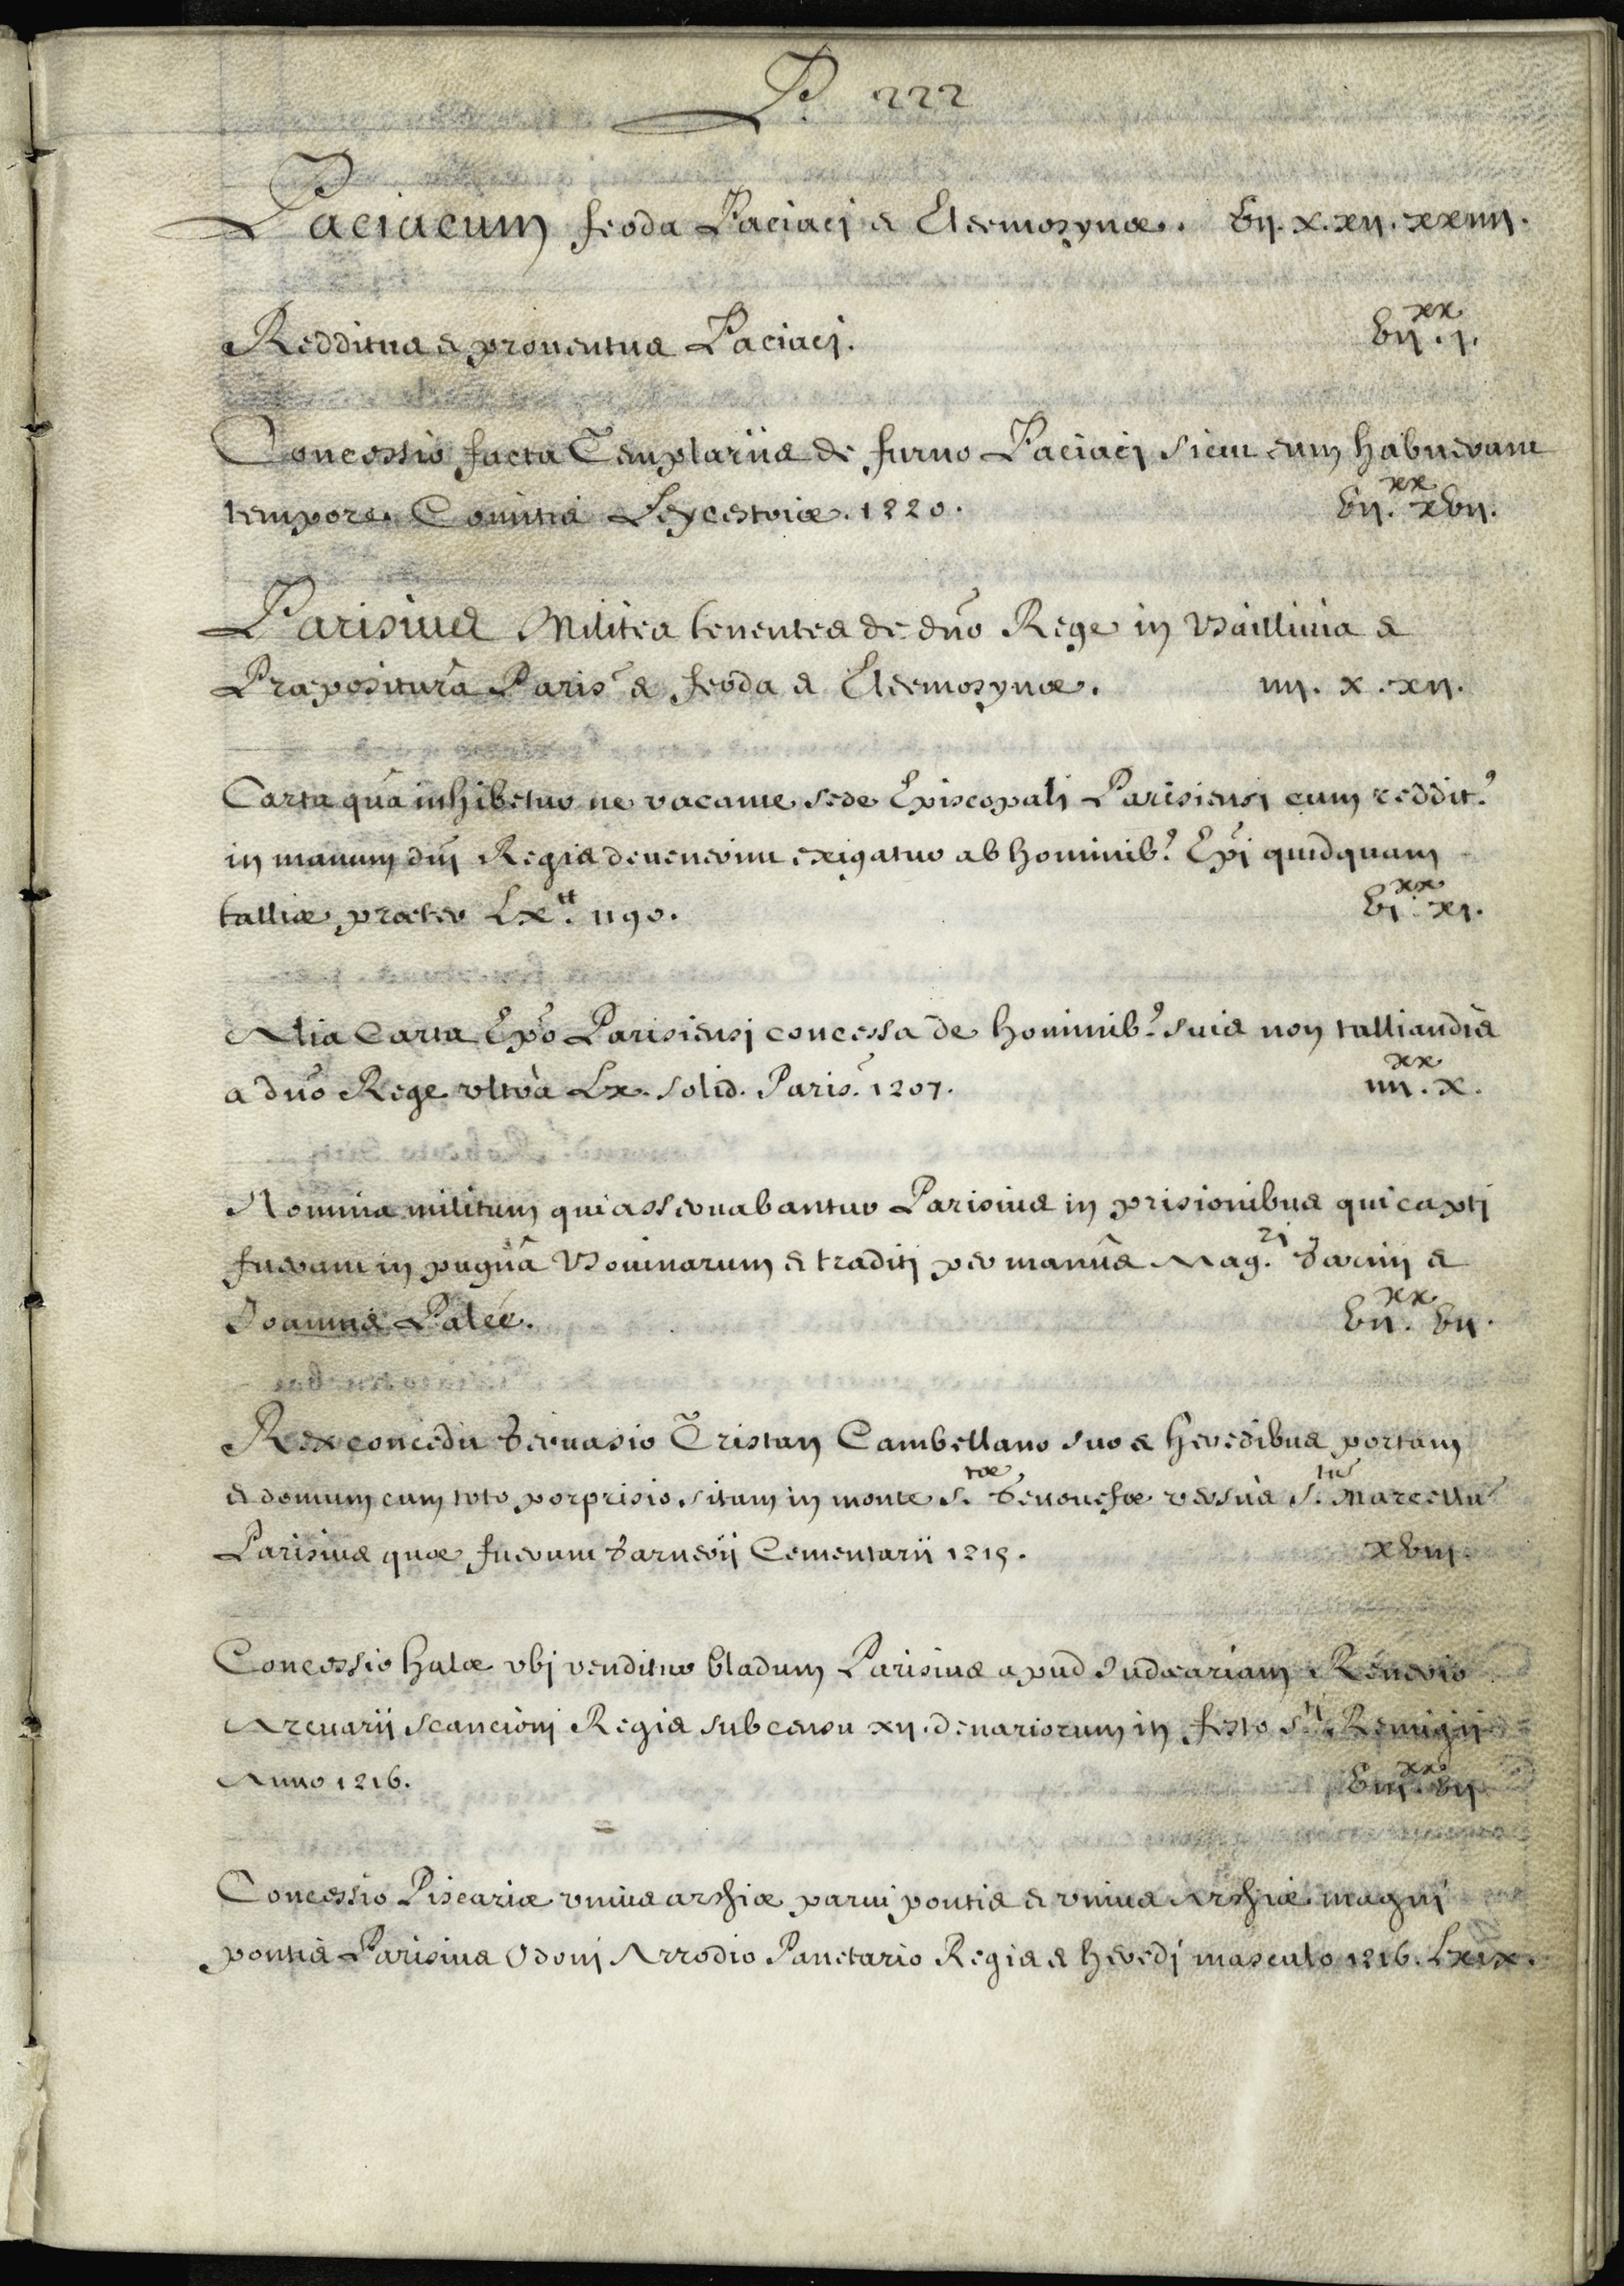 P. 222
Paciacum feoda Paciaci & Eleemosynæ. vij. x. xij. xxiiij.
Redditus & prouentus Paciaci. vij.^xx j.
Concessio facta Templariis de furno Paciaci sicut eum habuerant
tempore Comitis Leycestriæ. 1220. vij.^xx xvij.
Parisius Milites tenentes de dño Rege in Baillivia &
Præpositurâ Paris̃ & feoda & Eleemosynæ. iiij. x. xij.
Carta quâ inhibetur ne vacante sede Episcopali Parisiensi cum reddit9
in manum dñi Regis deuenerint exigatur ab hominib9 Ep̃i quidquam
talliæ præter Lx^tt. 1190. vj.^xx xj.
Alia Carta Ep̃o Parisiensi concessa de hominib9 suis non talliandis
a dño Rege vltrà Lx. solid. Paris̃. 1207. iiij.^xx x.
Nomina militum qui asseruabantur Parisius in prisionibus qui capti
fuerant in pugnâ Bouinarum & traditi per manũs Mag.^ri Garini &
Joannis Palée. vij.^xx vij.
Rex concedit Geruasio Tristan Cambellano suo & heredibus portam
& domum cum toto porprisio sitam in monte S.^tæ Genouefæ versùs S.^tũ Marcellũ
Parisius quæ fuerunt Garnerii Cementarii 1215. xviij.
Concessio halæ vbi venditur bladum Parisius apud Judæariam Renerio
Arcuarii scancioni Regis sub censu xij. denariorum in festo S.^ti Remigii
Anno 1216. viij.^xx vij
Concessio Piscariæ vnius archiæ parui pontis & vnius Archiæ magni
pontis Parisius Odoni Arrodio Panetario Regis & heredi masculo 1216. Lxix.